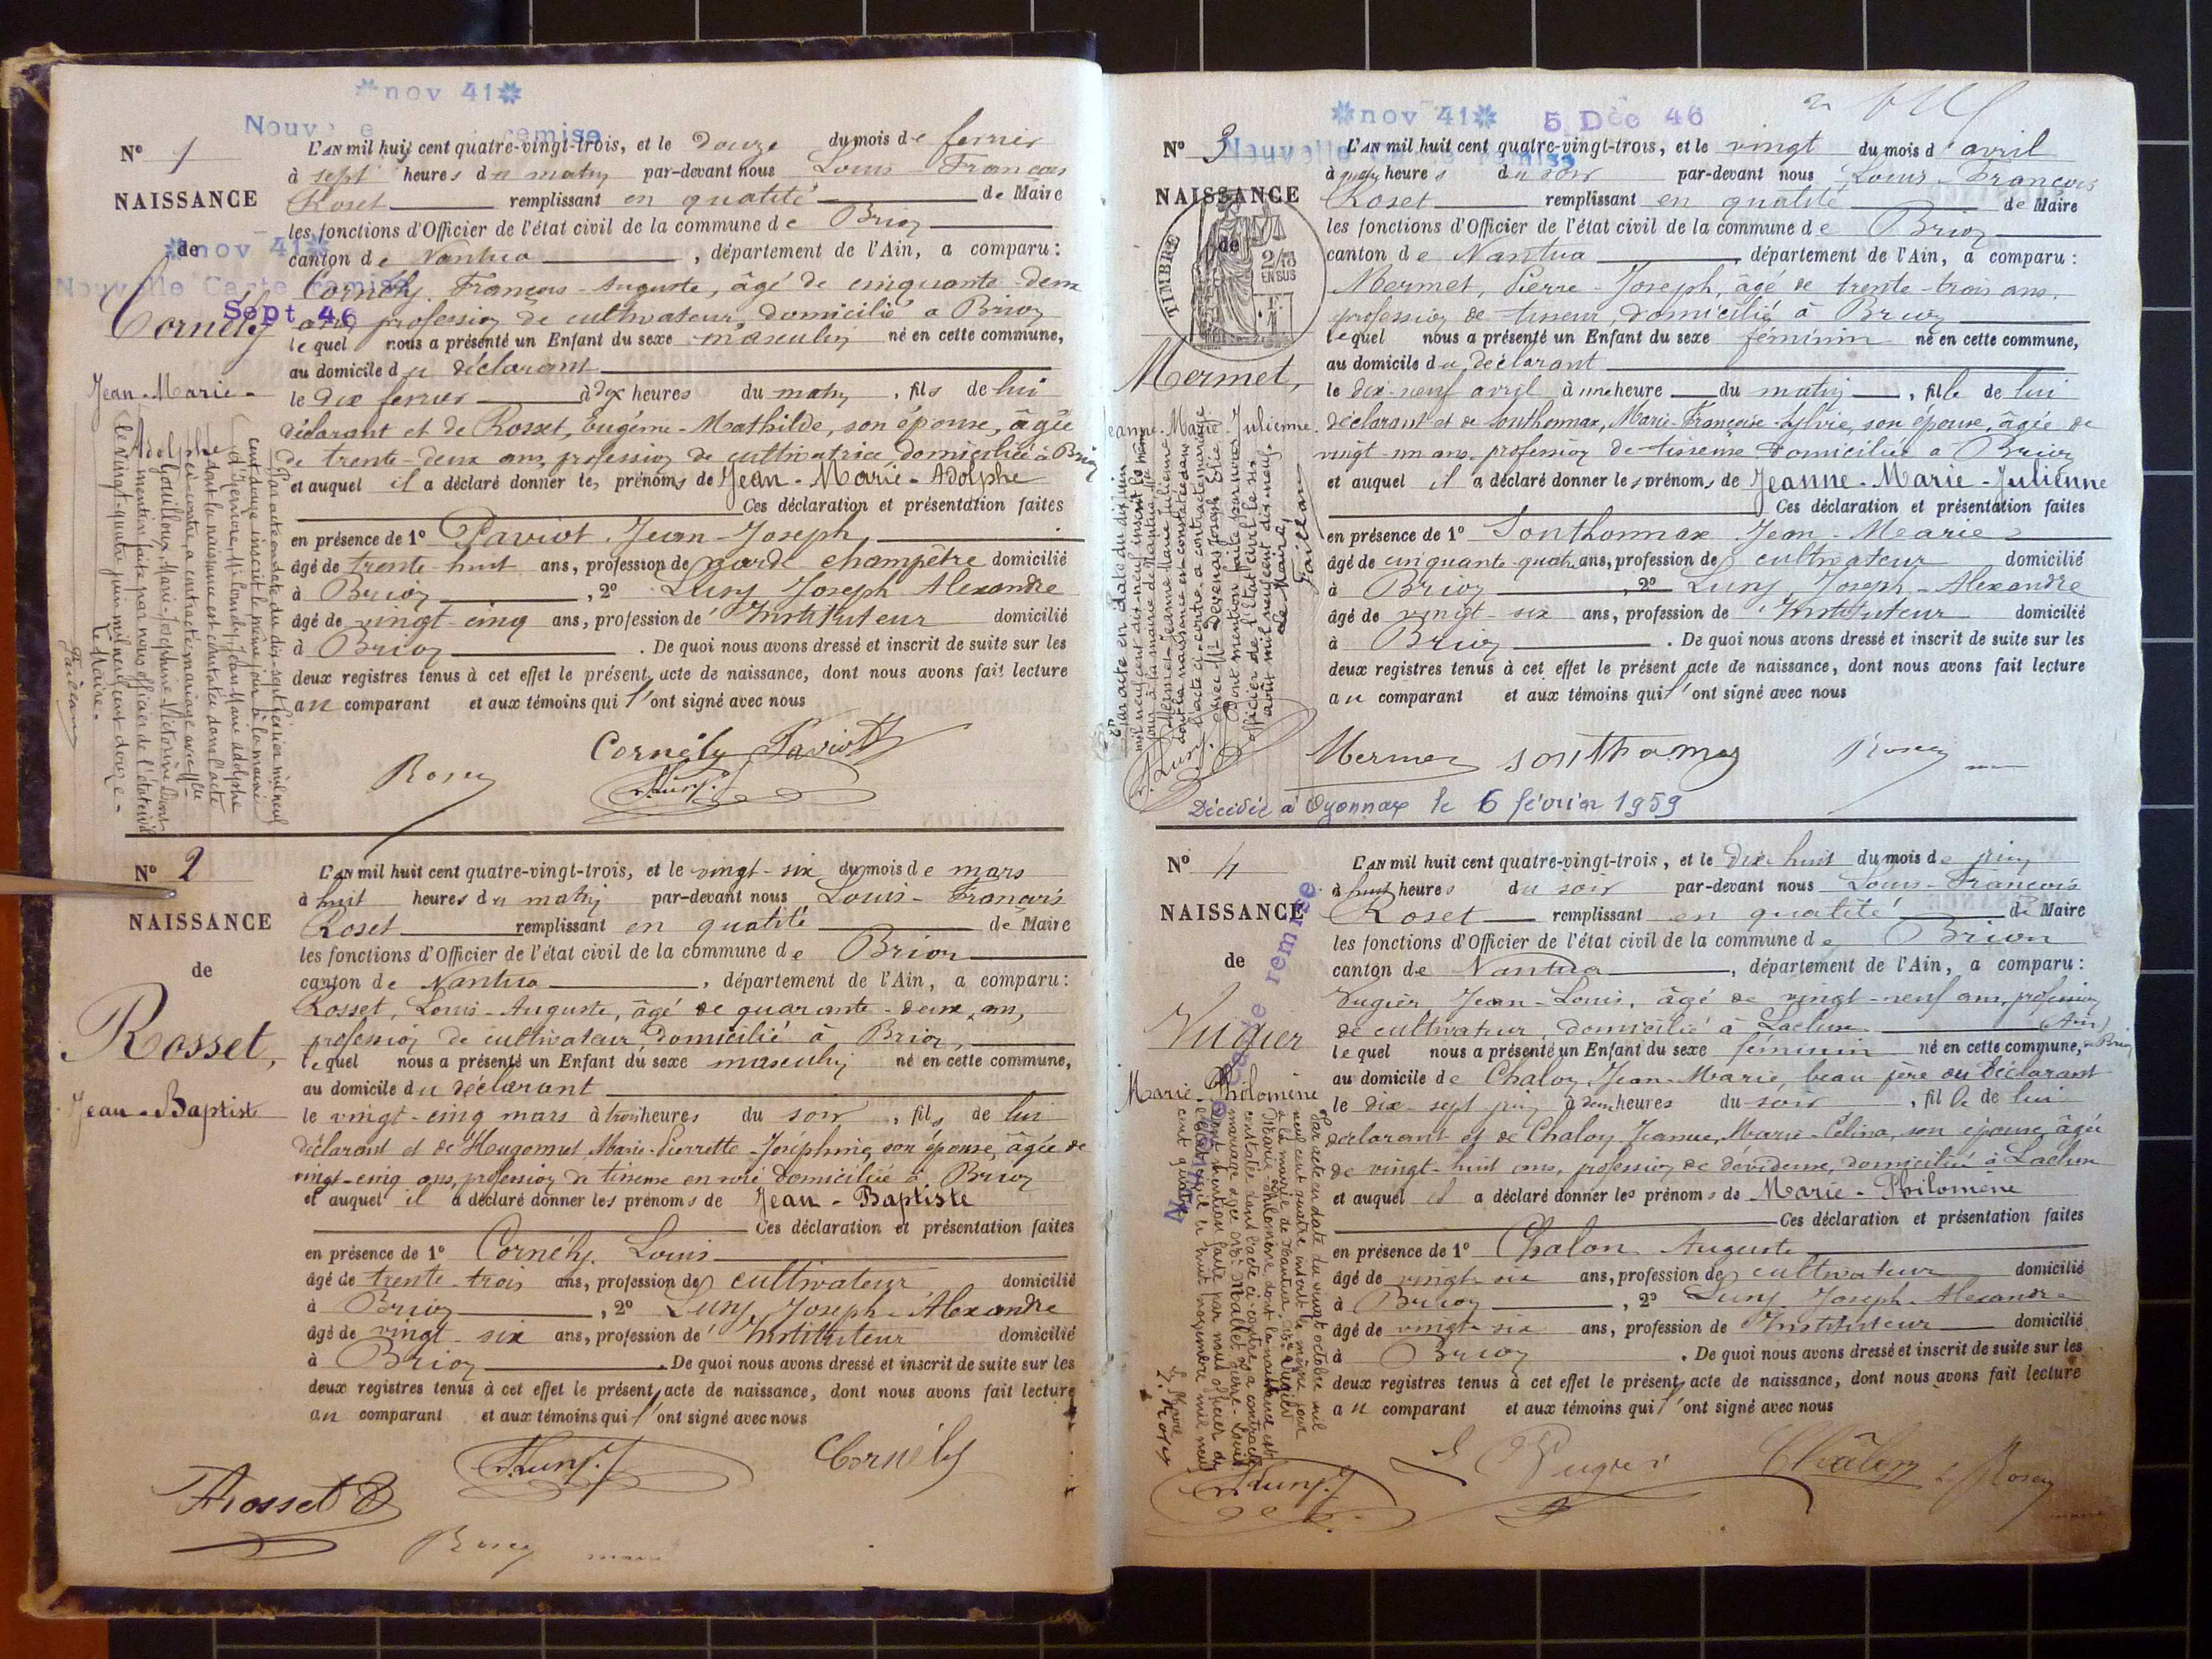 *nov 41*
remise
N° 1
NAISSANCE
de
*nov 41*
Nouvelle Carte remise
Sept 46
Cornély
Jean-Marie-
Adolphe
L'AN mil huit cent quatre-vingt-trois, et le douze du mois de fevrier
à sept heures du matin par-devant nous Louis François
Roset remplissant en qualité de Maire
les fonctions d'Officier de l'état civil de la commune de Brion
canton de Nantua, département de l'Ain, a comparu :
Cornély François-Auguste, âgé de cinquante-deux
ans, profession de cultivateur, domicilié à Brion
lequel nous a présenté un Enfant du sexe masculin né en cette commune,
au domicile du déclarant
le dix fevrier à dix heures du matin, fils de lui
déclarant et de Rosset, Eugénie-Mathilde, son épouse, âgée
de trente-deux ans, profession de cultivatrice domiciliée à Brion
et auquel il a déclaré donner les prénoms de Jean-Marie-Adolphe
Ces déclaration et présentation faites
en présence de 1° Paviot Jean-Joseph,
âgé de trente-huit ans, profession de garde champêtre domicilié
à Brion, 2° Luny Joseph Alexandre
âgé de vingt-cinq ans, profession d'Instituteur domicilié
à Brion. De quoi nous avons dressé et inscrit de suite sur les
deux registres tenus à cet effet le présent acte de naissance, dont nous avons fait lecture
au comparant et aux témoins qui l'ont signé avec nous
Par acte en date du dix-sept février mil neuf
cent douze inscrit le même jour à la mairie
Mr Cornély, Jean-Marie Adolphe
dont la naissance est constatée dans l'acte
ci-contre, a contracté mariage avec Mlle
Gouilloux, Marie-Joséphine-Victorine Dont
mention faite par nous officier de l'état civil
le vingt-quatre juin mil neuf cent douze-
Le Maire-
Cornély Paviot
Luny
N° 2
NAISSANCE
de
Rosset,
Jean-Baptiste
L'AN mil huit cent quatre-vingt-trois, et le vingt-six du mois de mars
à huit heures du matin par-devant nous Louis-François
Roset remplissant en qualité de Maire
les fonctions d'Officier de l'état civil de la commune de Brion
canton de Nantua, département de l'Ain, a comparu :
Rosset, Louis-Auguste, âgé de quarante-deux ans,
profession de cultivateur domicilié à Brion,
lequel nous a présenté un Enfant du sexe masculin né en cette commune,
au domicile du déclarant
le vingt-cinq mars à trois heures du soir, fils de lui
déclarant et de Hugonnet, Marie-Pierrette-Joséphine, son épouse, âgée de
vingt-cinq ans, profession de domiciliée à Brion
et auquel il a déclaré donner les prénoms de Jean-Baptiste
Ces déclaration et présentation faites
en présence de 1° Cornély Louis
âgé de trente-trois ans, profession de cultivateur domicilié
à Brion, 2° Luny Joseph-Alexandre
âgé de vingt-six ans, profession d'Instituteur domicilié
à Brion. De quoi nous avons dressé et inscrit de suite sur les
deux registres tenus à cet effet le présent acte de naissance, dont nous avons fait lecture
au comparant et aux témoins qui l'ont signé avec nous
Luny
Cornély
Rosset
*nov 41* 5 Dec 46
Nouvelle Carte remise
N° 3
NAISSANCE
de
TIMBRE
EN SUS
Mermet,
Jeanne-Marie Julienne
L'AN mil huit cent quatre-vingt-trois, et le vingt du mois d'avril
à heures du soir par-devant nous Louis-François
Roset remplissant en qualité de Maire
les fonctions d'Officier de l'état civil de la commune de Brion
canton de Nantua, département de l'Ain, a comparu :
Mermet, Pierre-Joseph, âgé de trente-trois ans,
profession de tisseur domicilié à Brion
lequel nous a présenté un Enfant du sexe féminin né en cette commune,
au domicile du déclarant
le dix-neuf avril à une heure du matin, fille de lui
déclarant et de Sonthonnax, Marie-Françoise-Sylvie, son épouse, âgée de
vingt-un ans, profession de tisseuse domiciliée à Brion
et auquel il a déclaré donner les prénoms de Jeanne-Marie-Julienne
Ces déclaration et présentation faites
en présence de 1° Sonthonnax Jean-Marie
âgé de cinquante-quatre ans, profession de cultivateur domicilié
à Brion, 2° Luny Joseph-Alexandre
âgé de vingt-six ans, profession d'Instituteur domicilié
à Brion. De quoi nous avons dressé et inscrit de suite sur les
deux registres tenus à cet effet le présent acte de naissance, dont nous avons fait lecture
au comparant et aux témoins qui l'ont signé avec nous
Par acte en date du dix juin
mil neuf cent dix-neuf inscrit le même
jour à la mairie de Nantua, Mlle
Mermet Jeanne Marie Julienne
dont la naissance est constatée dans
l'acte ci-contre a contracté mariage
Dont mention faite par nous
officier de l'état civil le six
août mil neuf cent dix-neuf.
Le Maire,
Mermet
Décédée à Oyonnax le 6 février 1959
N° 4
NAISSANCE
de
remise
Vugier
Marie-Philomène
L'AN mil huit cent quatre-vingt-trois, et le dix-huit du mois de juin
à huit heures du soir par-devant nous Louis-François
Roset remplissant en qualité de Maire
les fonctions d'Officier de l'état civil de la commune de Brion
canton de Nantua, département de l'Ain, a comparu :
Vugier Jean-Louis, âgé de vingt-neuf ans, profession
de cultivateur, domicilié à Lacluse (Ain)
lequel nous a présenté un Enfant du sexe féminin né en cette commune, de Brion
au domicile de Chalon Jean-Marie, beau père du déclarant
le dix-sept juin à deux heures du soir, fille de lui
déclarant et de Chalon Jeanne, Marie-Célina, son épouse, âgée
de vingt-huit ans, profession de dévideuse, domiciliée à Lacluse
et auquel il a déclaré donner les prénoms de Marie-Philomène
Ces déclaration et présentation faites
en présence de 1° Chalon Auguste
âgé de vingt-six ans, profession de cultivateur domicilié
à Brion, 2° Luny Joseph-Alexandre
âgé de vingt-six ans, profession d'Instituteur domicilié
à Brion. De quoi nous avons dressé et inscrit de suite sur les
deux registres tenus à cet effet le présent acte de naissance, dont nous avons fait lecture
au comparant et aux témoins qui l'ont signé avec nous
Par acte en date du vingt octobre mil
neuf cent quatre, inscrit le même jour
à la mairie de Nantua, Vugier
Marie-Philomène dont la naissance est
constatée dont l'acte ci-contre a contracté
mariage avec Mallet Louis
dont mention faite par nous officier de
l'état civil le huit novembre mil neuf
cent quatre
Le Maire
Luny
Vugier
Chalon